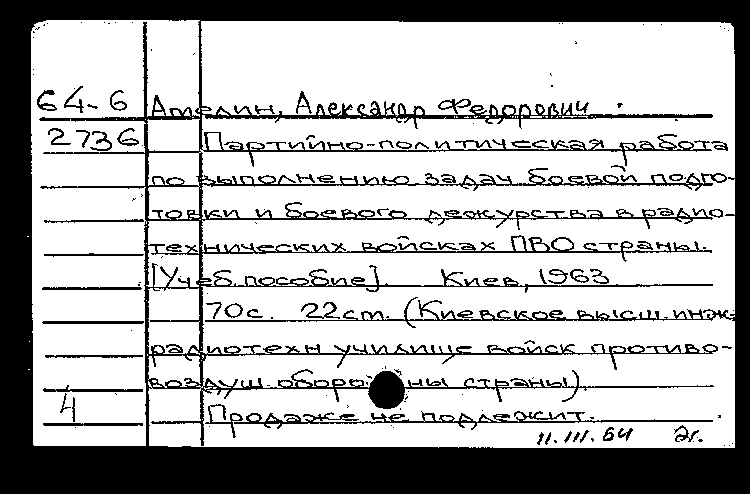 64-6 Амелин, Александр Федорович.
2736 Партийно-политическая работа
по выполнению задач боевой подго-
товки и боевого дежурства в радио-
технических войсках ПВО страны.
[Учеб. пособие]. Киев, 1963
70 с. 22 cm. (Киевское высш. инж.
радиотехн училище войск противо-
воздуш обороны страны).
4 Продаже не подлежит.
11.III.64 2г.